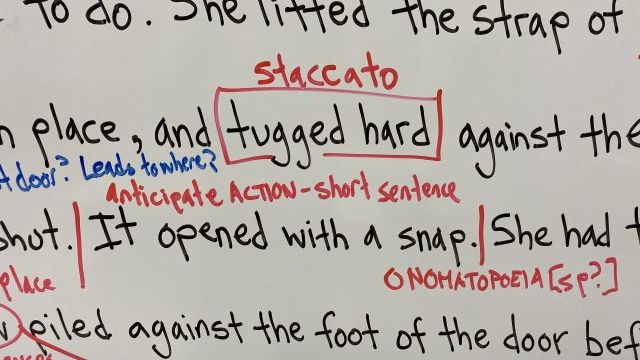 to do. She lifted the strap of
staccato
place, and tugged hard against the
door? Leads to where?
anticipate ACTION-short sentence
shut. It opened with a snap. She had
place
ONOMATOPOEIA [sp?]
piled against the foot of the door bef